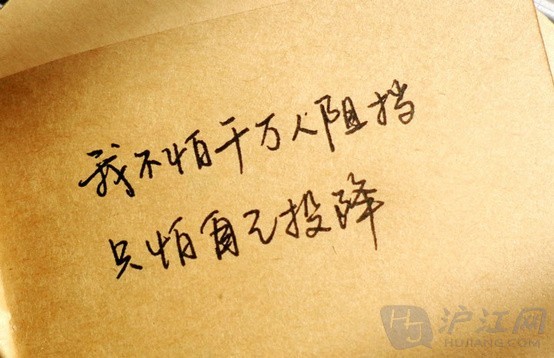 我不怕千万人阻挡
只怕自己投降
HJ 沪江网
HUJIANG.COM